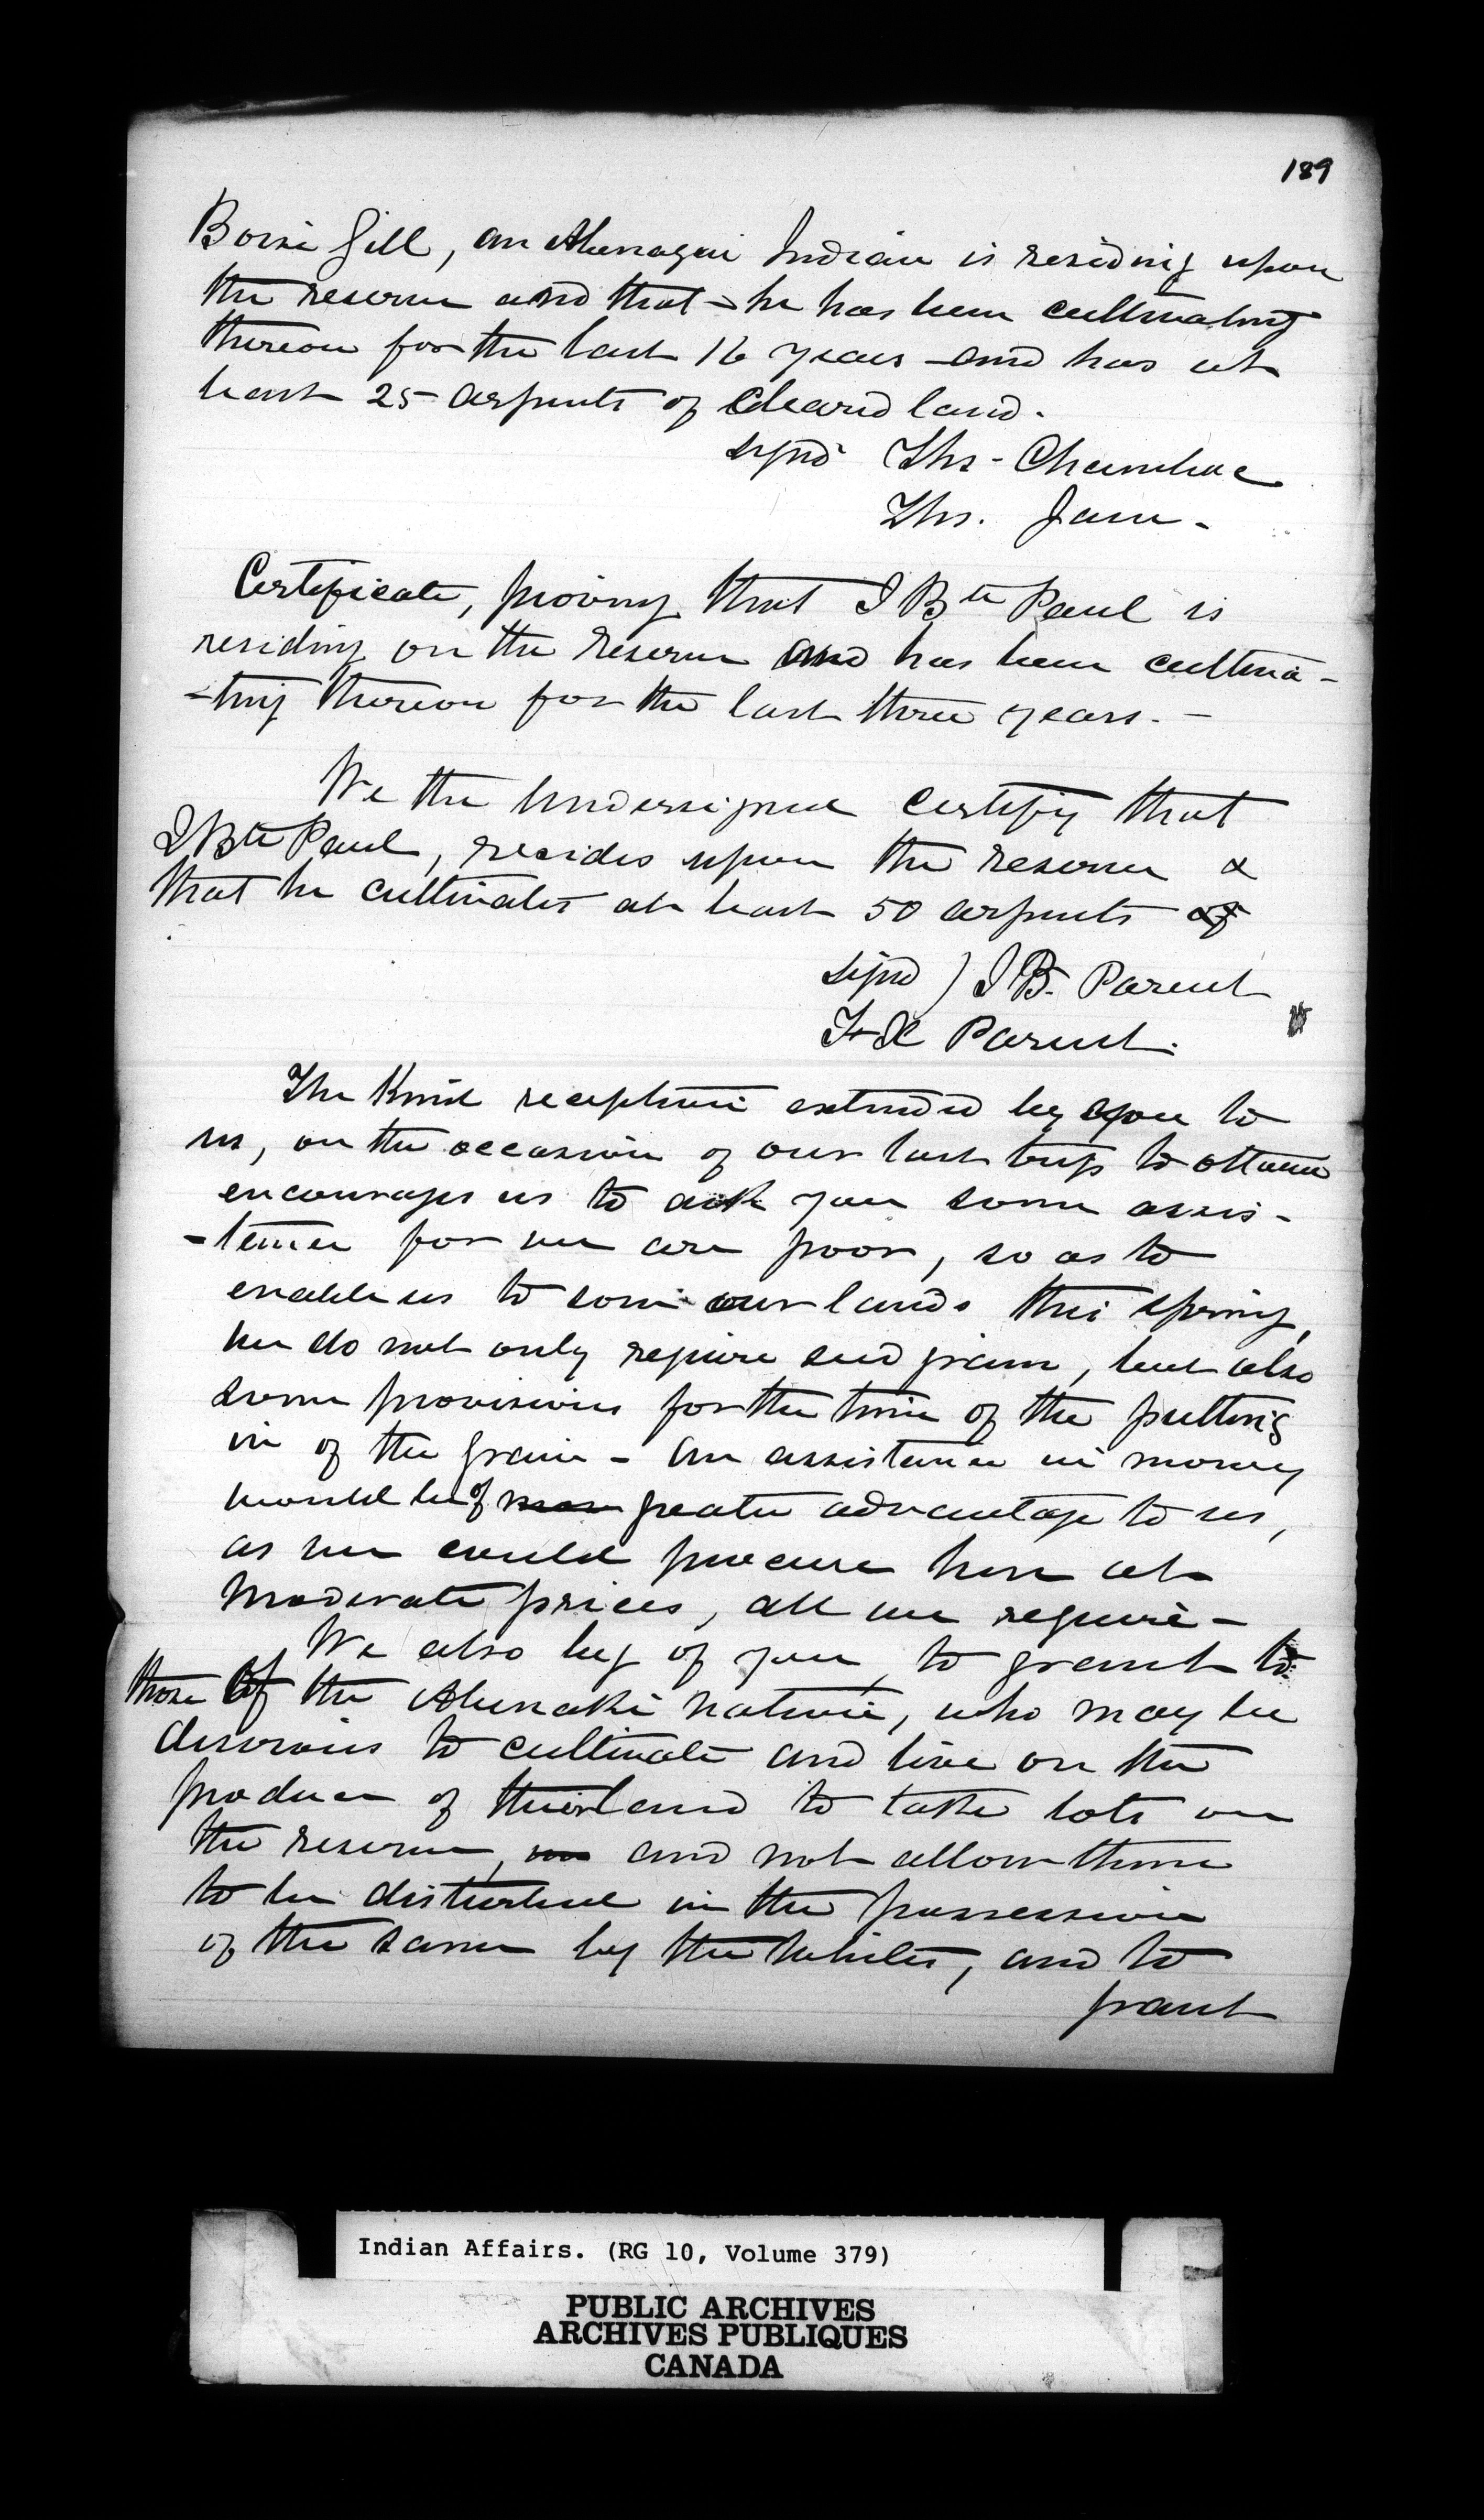 189
Boisi Gill, an Abenaqui Indian is residing upon
the reserve and that he has been cultivating
thereon for the last 16 years and has at
least 25 arpents of cleared land.
signd Ths - Chambac
Ths. Jam -
Certificate, proving that J Bte Paul is
residing on the reserve and has been cultiva-
-ting thereon for the last three years. -
We the undersigned certify that
J Bte Paul, resides upon the reserve &
that he cultivates at least 50 arpents of
signd ) J B. Parent
F X Parent.
The Kind reception extended by you to
us, on the occasion of our last trip to Ottawa
encourages us to ask you some assis-
-tance for we are poor, so as to
enable us to sow our lands this spring,
we do not only require seed grain, but also
some provisions for the time of the putting
in of the grain - an assistance in money
would be of greater advantage to us,
as we could procure here at
moderate prices, all we require -
We also beg of you, to grant to
those of the Abenaki nation, who may be
desirous to cultivate and live on the
produce of their land to take lots on
the reserve, and not allow them
to be disturbed in the possession
of the same by the whites, and to
grant
Indian Affairs. (RG 10, Volume 379)
PUBLIC ARCHIVES
ARCHIVES PUBLIQUES
CANADA